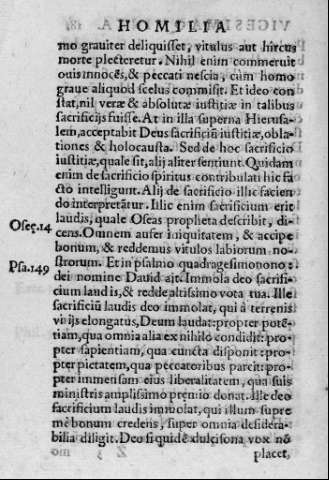 HOMILIA
mo grauiter deliquisset, vitulus aut hircus
morte plecteretur. Nihil enim commeruit
ouis innocẽs, & peccati nescia, cùm homo
graue aliquod scelus commisit. Et ideo con
stat, nil veræ & absolutæ iustitiæ in talibus
sacrificijs fuisse. At in illa superna Hierusa-
lem, acceptabit Deus sacrificiũ iustitiæ, obla
tiones & holocausta. Sed de hoc sacrificio
iustitiæ, quale sit, alij aliter sentiunt. Quidam
enim de sacrificio spiritus contribulati hîc fa
cto intelligunt. Alij de sacrificio illic facien
do interpretãtur. Illic enim sacrificium erit
laudis, quale Oseas propheta describit, di-
Oseę.14
cens. Omnem aufer iniquitatem, & accipe
bonum, & reddemus vitulos labiorum no-
Psa.149
strorum. Et in psalmo quadragesimonono:
dei nomine Dauid ait. Immola deo sacrifi-
cium laudis, & redde altissimo vota tua. Ille
sacrificiũ laudis deo immolat, qui à terrenis
vijs elongatus, Deum laudat: propter potẽ-
tiam, qua omnia alia ex nihilo condidit: pro-
pter sapientiam, qua cuncta disponit: pro-
pter pietatem, qua peccatoribus parcit: pro-
pter immensam eius liberalitatem, qua suis
ministris amplissimo premio donat. Ille deo
sacrificium laudis immolat, qui illum supre
mè bonum credens, super omnia desidera-
bilia diligit. Deo siquidẽ dulcisona vox nõ
placet,